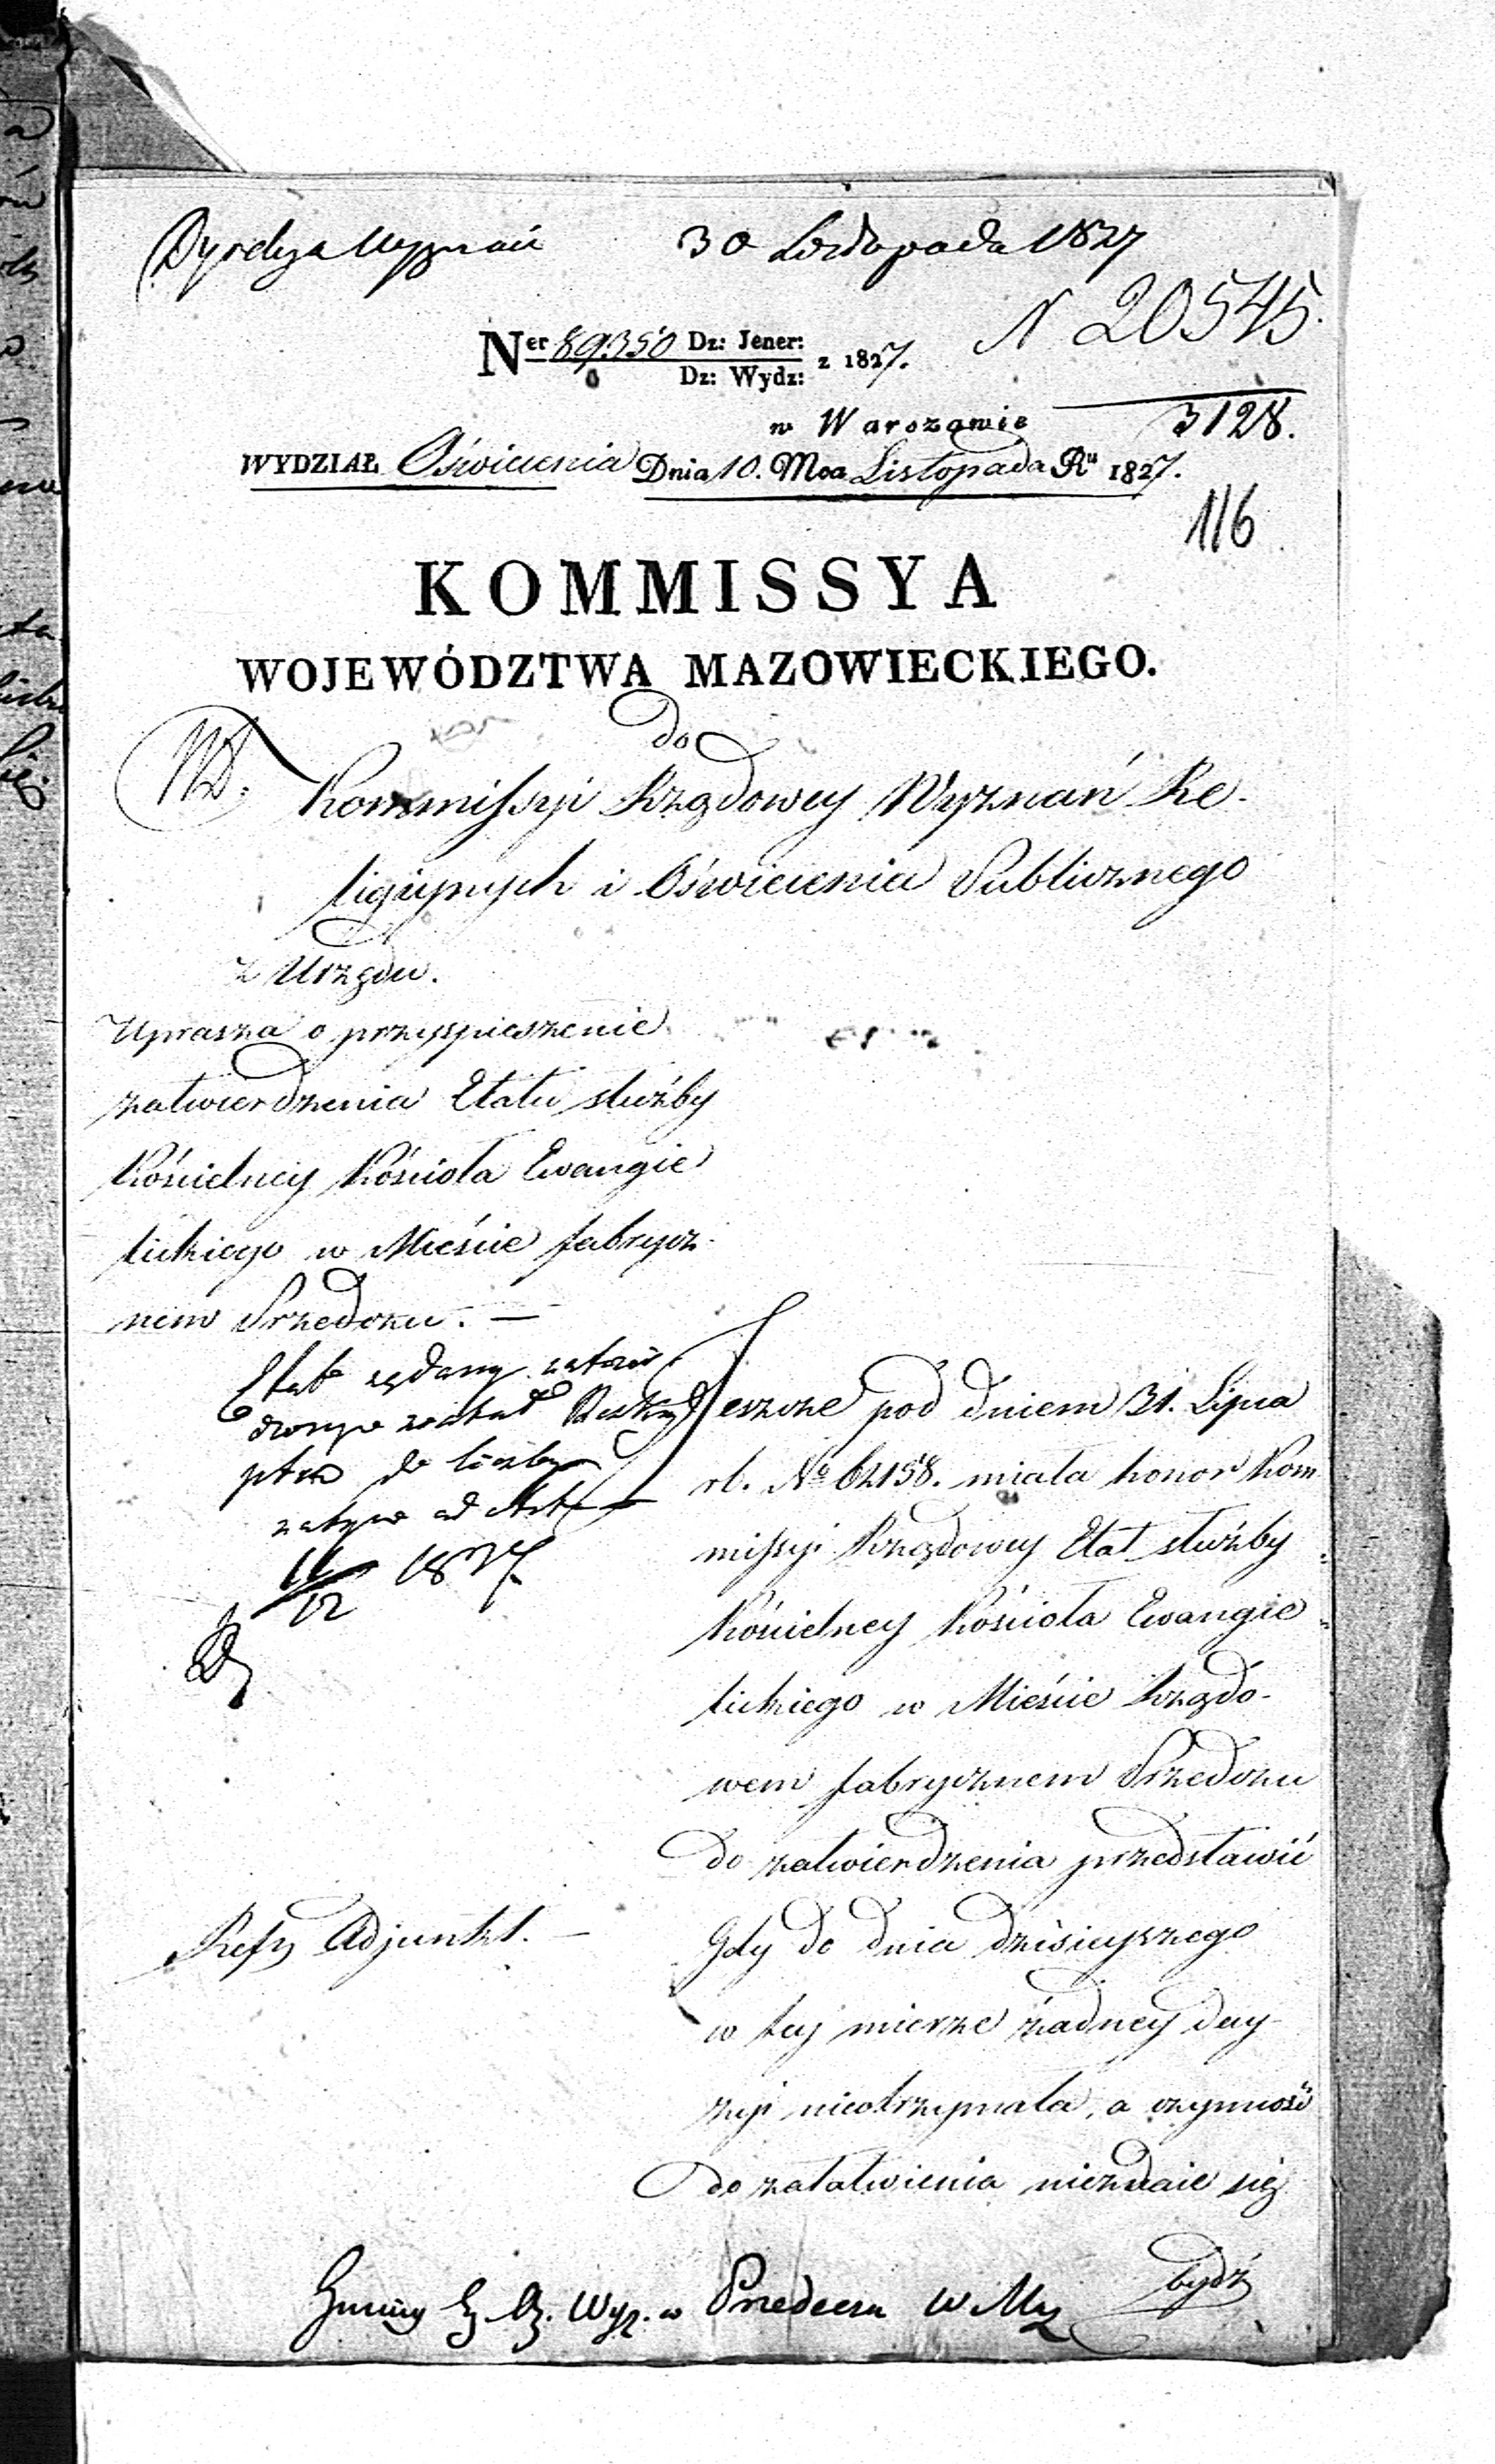 Dyrekcya Wyznań 30 Listopada 1827
N 20545.
Ner 89350 Dz: Jener: z 1827.
Dz: Wydz:
w Warszawie 3128.
WYDZIAŁ Oświecenia Dnia 10. Mca Listopada Ru 1827.
116
KOMMISSYA
WOJEWÓDZTWA MAZOWIECKIEGO.
do
WD. Kommissyi Rządowey Wyznań Re-
ligiynych i Oświecenia Publicznego
z Urzędu.
Uprasza o przyspieszenie
zatwierdzenia Etatu służby
Kościelney Kościoła Ewangie
lickiego w Mieście fabrycz-
nem Przedczu. —
Etat żądany
do liczby
11/12 1827
Jeszcze pod dniem 31. Lipca
rb. No 62158. miała honor Kom
missyi Rządowey Etat służby
Kościelney Kościoła Ewangie
lickiego w Mieście Rządo-
wem fabrycznem Przedczu
do zatwierdzenia przedstawić
Refz Adjunkt. —
Gdy do dnia dzisieyszego
w tey mierze żadney decy-
zyi nieotrzymała, a czynność
do załatwienia niezdaie się
bydź
Gminy Ew. Wyz. w Przedeczu W Maz